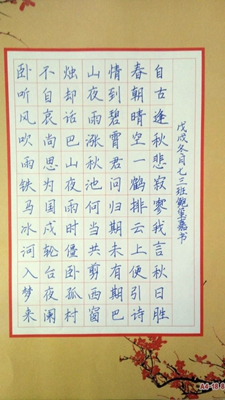 自古逢秋悲寂寥我言秋日胜
春朝晴空一鹤排云上便引诗
情到碧霄君问归期未有期巴
山夜雨涨秋池何当共剪西窗
烛却话巴山夜雨时僵卧孤村
不自哀尚思为国戍轮台夜阑
卧听风吹雨铁马冰河入梦来
戊戌冬月七三班鲍嘉书